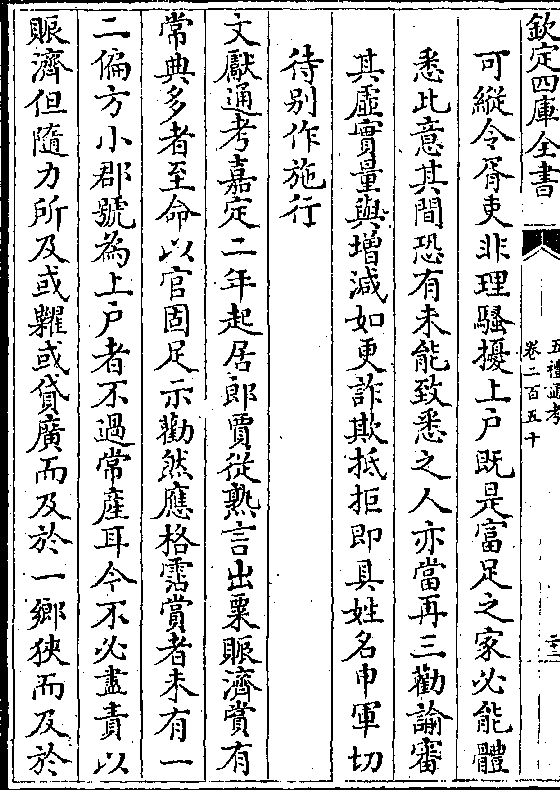 欽定四庫全書
五禮通考
卷二百五十
可縱令胥吏非理騷擾上户既是富足之家必能體
悉此意其間恐有未能致悉之人亦當再三勸諭審
其虛實量與增減如更詐欺抵拒即具姓名申軍切
待别作施行
文獻通考嘉定二年起居郎賈從熟言出粟賑濟賞有
常典多者至命以官固足示勸然應格霑賞者未有一
二偏方小郡號為上户者不過常產耳今不必盡責以
賑濟但隨力所及或糶或貸廣而及於一鄉狹而及於